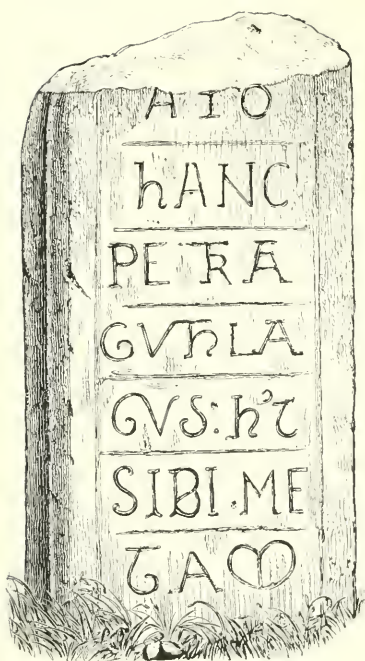 AIO
hANC
PETRĀ
GVThLA
CVS: h't
SIBI·ME
TAM